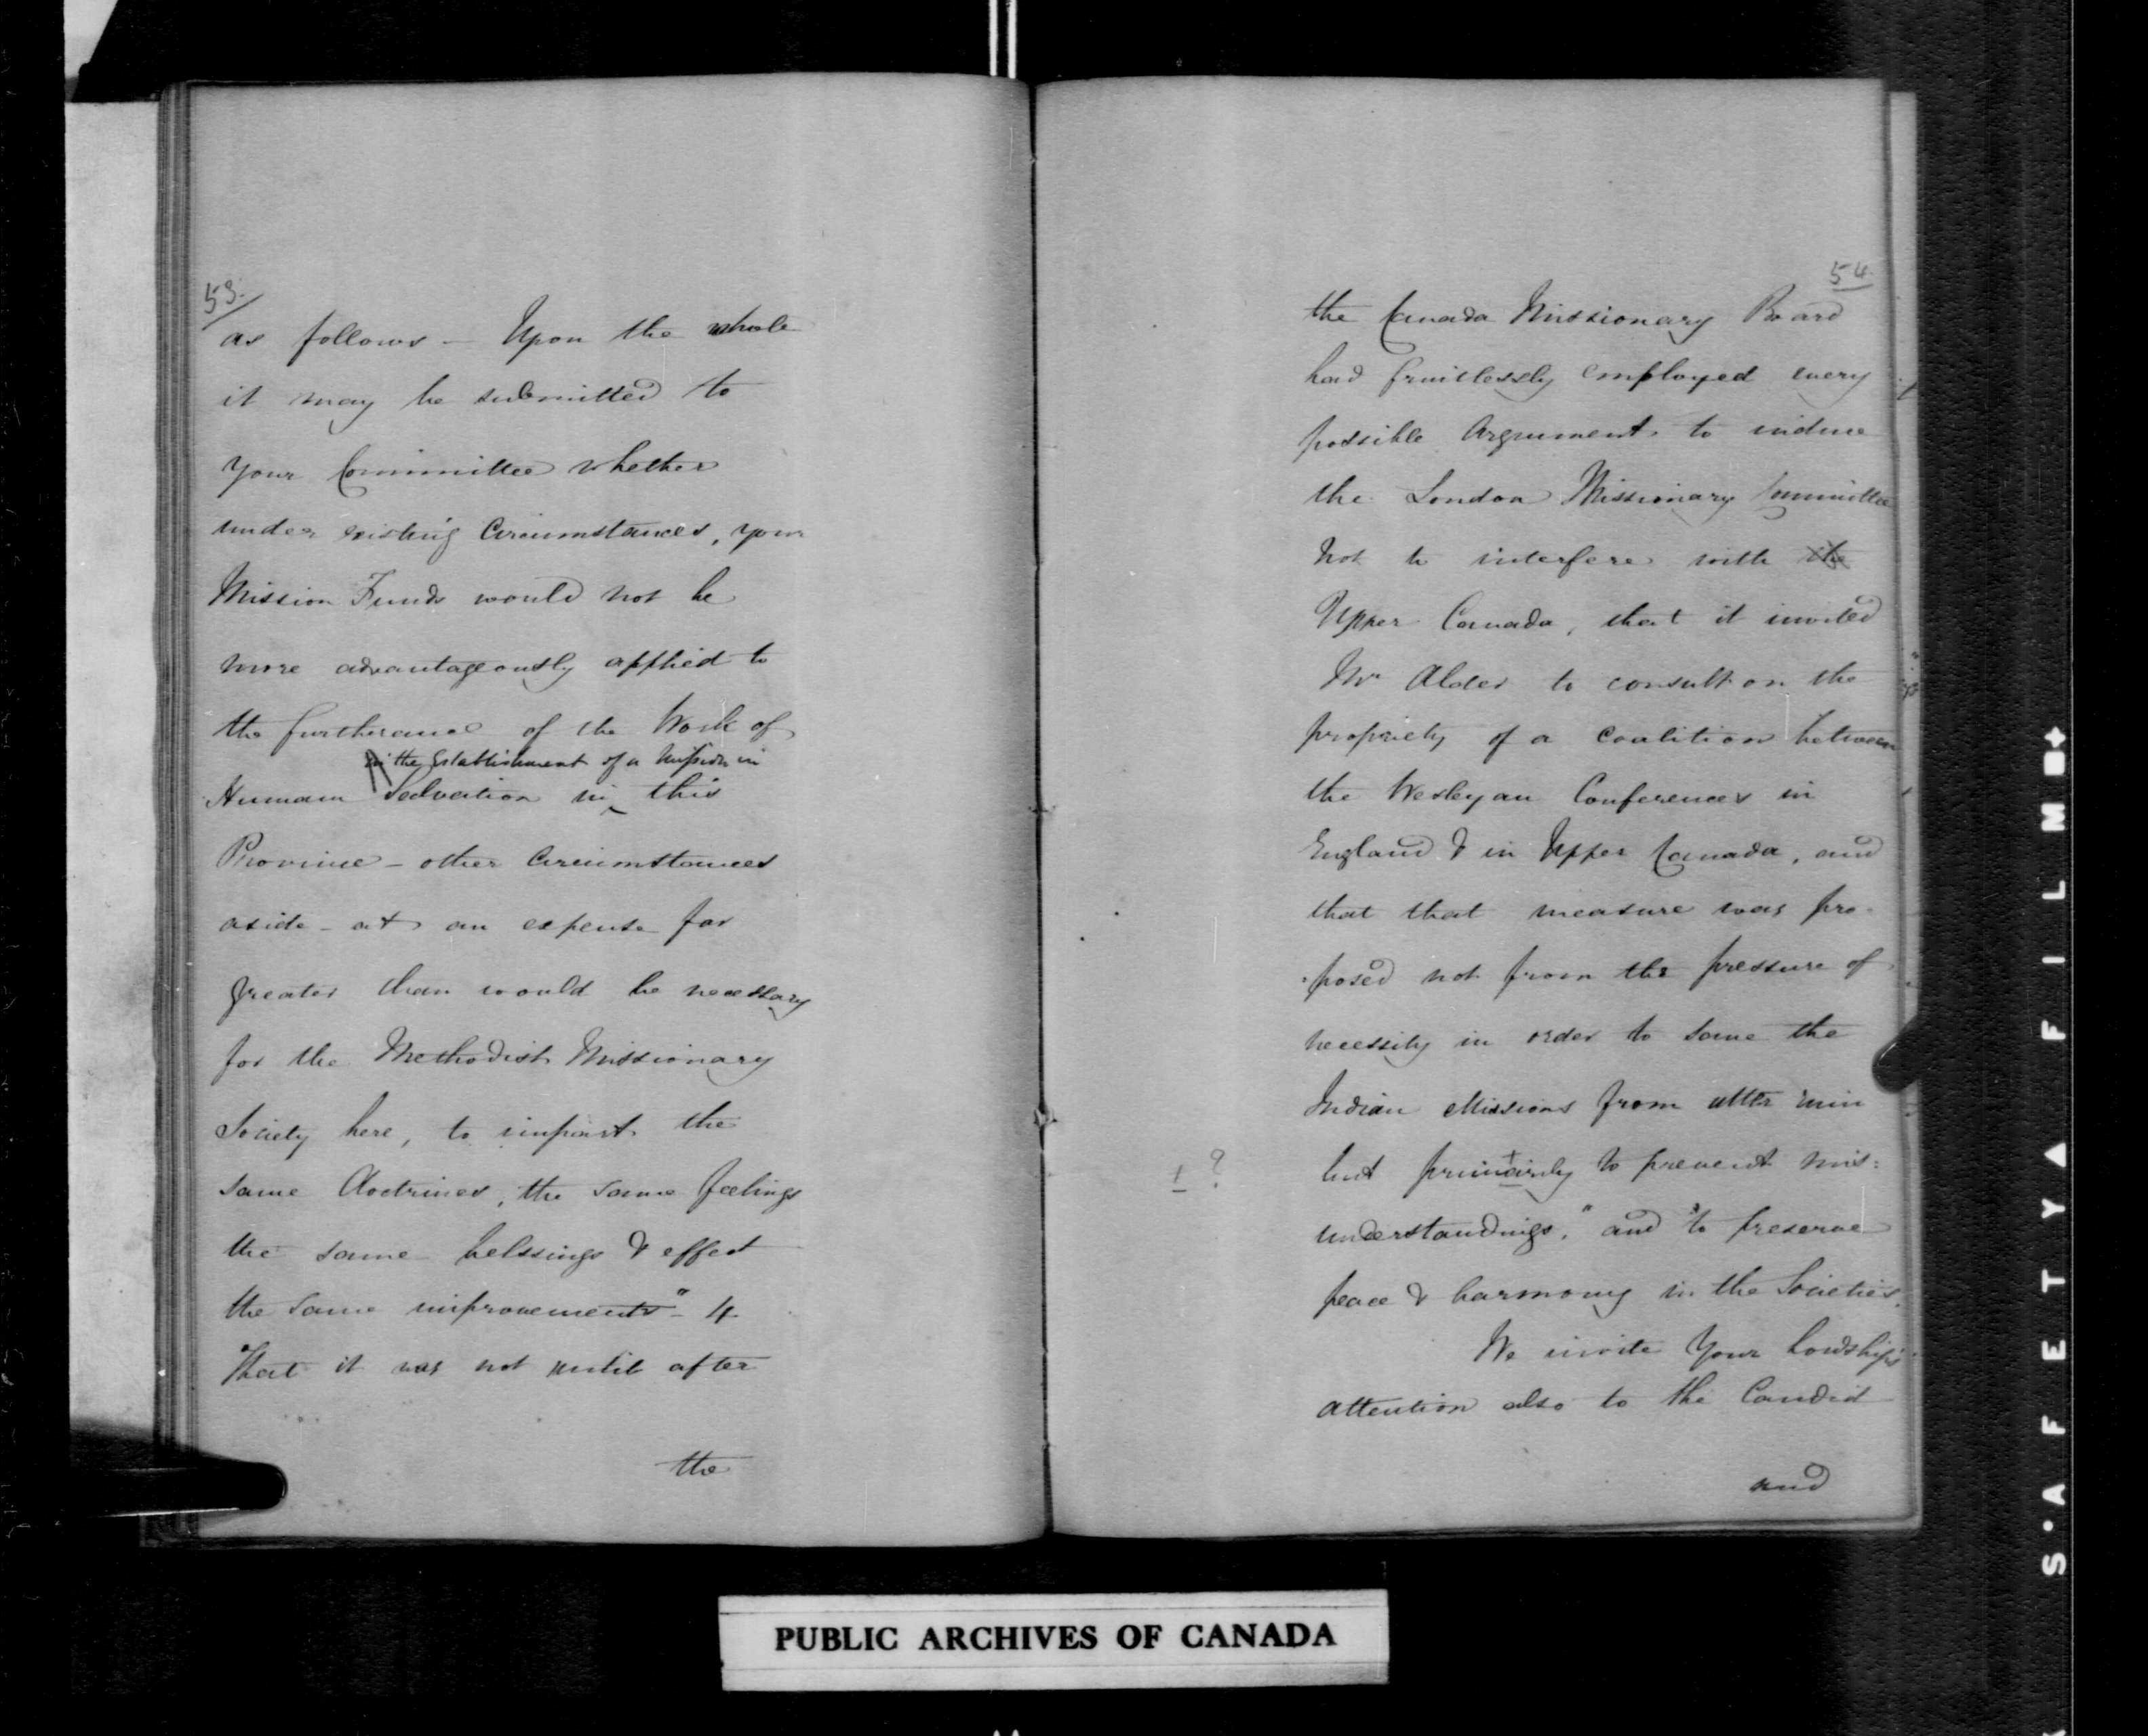 53.
as follows - Upon the whole
it may be submitted to
your Committee whether
under existing Circumstances, your
Mission Funds would not be
more advantageously applied to
the furtherance of the Work of
in the establishment of a Mission in
Human Salvation in this
Province - other Circumstances
aside - at an expense far
greater than would be necessary
for the Methodist Missionary
Society here, to impart the
same doctrines, the same feelings
the same belssings & effect
the same improvements" - 4
That it was not until after
the
54
the Canada Missionary Board
had fruitlessly employed every
possible Argument to induce
the London Missionary Committee
not to interfere with the
Upper Canada, that it invited
Mr Alder to consult on the
propriety of a coalition between
the Wesleyan Conferences in
England & in Upper Canada, and
that that measure was pro-
posed not from the pressure of
necessity in order to save the
Indian Missions from utter ruin
but primarily to prevent mis=
?
understandings," and "to preserve
peace & harmony in the Societies.
We invite Your Lordship's
attention also to the Candid
and
PUBLIC ARCHIVES OF CANADA
S.AFETY▲FILM